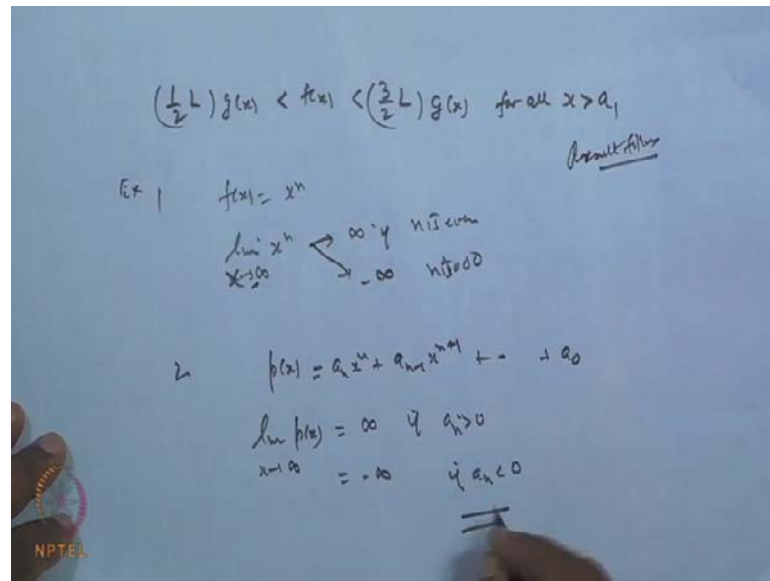 (1/2 L) g(x) < f(x) < (3/2 L) g(x) for all x > a₁
Result follows
Ex 1 f(x) = xⁿ
lim x→∞ xⁿ → ∞ if n is even
→ -∞ n is odd
2 p(x) = aₙxⁿ + aₙ₋₁xⁿ⁻¹ + - + a₀
lim x→∞ p(x) = ∞ if aₙ > 0
= -∞ if aₙ < 0
NPTEL